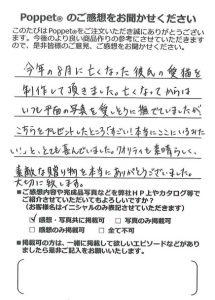 Poppet® のご感想をお聞かせください
このたびはPoppet®をご注文いただき誠にありがとうございま
す。今後のより良い商品作りの参考にさせていただきますの
で、是非皆様のご意見、ご感想をお聞かせください。
今年の8月に亡くなった彼氏の愛猫を
制作して頂きました。亡くなってからは
いつも平面の写真を愛しそうに撫でていましたが
こちらをプレゼントしたところ「すごい！本当にここにいるみた
い！」と、とても喜んでいました。クオリティも素晴らしく、
素敵な贈り物を本当にありがとうございました。
大切に致します。
■ご感想内容や完成品写真などを弊社HP上やカタログ等で
ご紹介させていただいてもよろしいですか？
（お客様名はイニシャルのみ表記させていただきます）
☑感想・写真共に掲載可 □写真のみ掲載可
□感想のみ掲載可 □全て不可
■掲載可の方は、一緒に掲載して欲しいエピソードなどがあり
ましたら是非ご記入をお願いいたします。